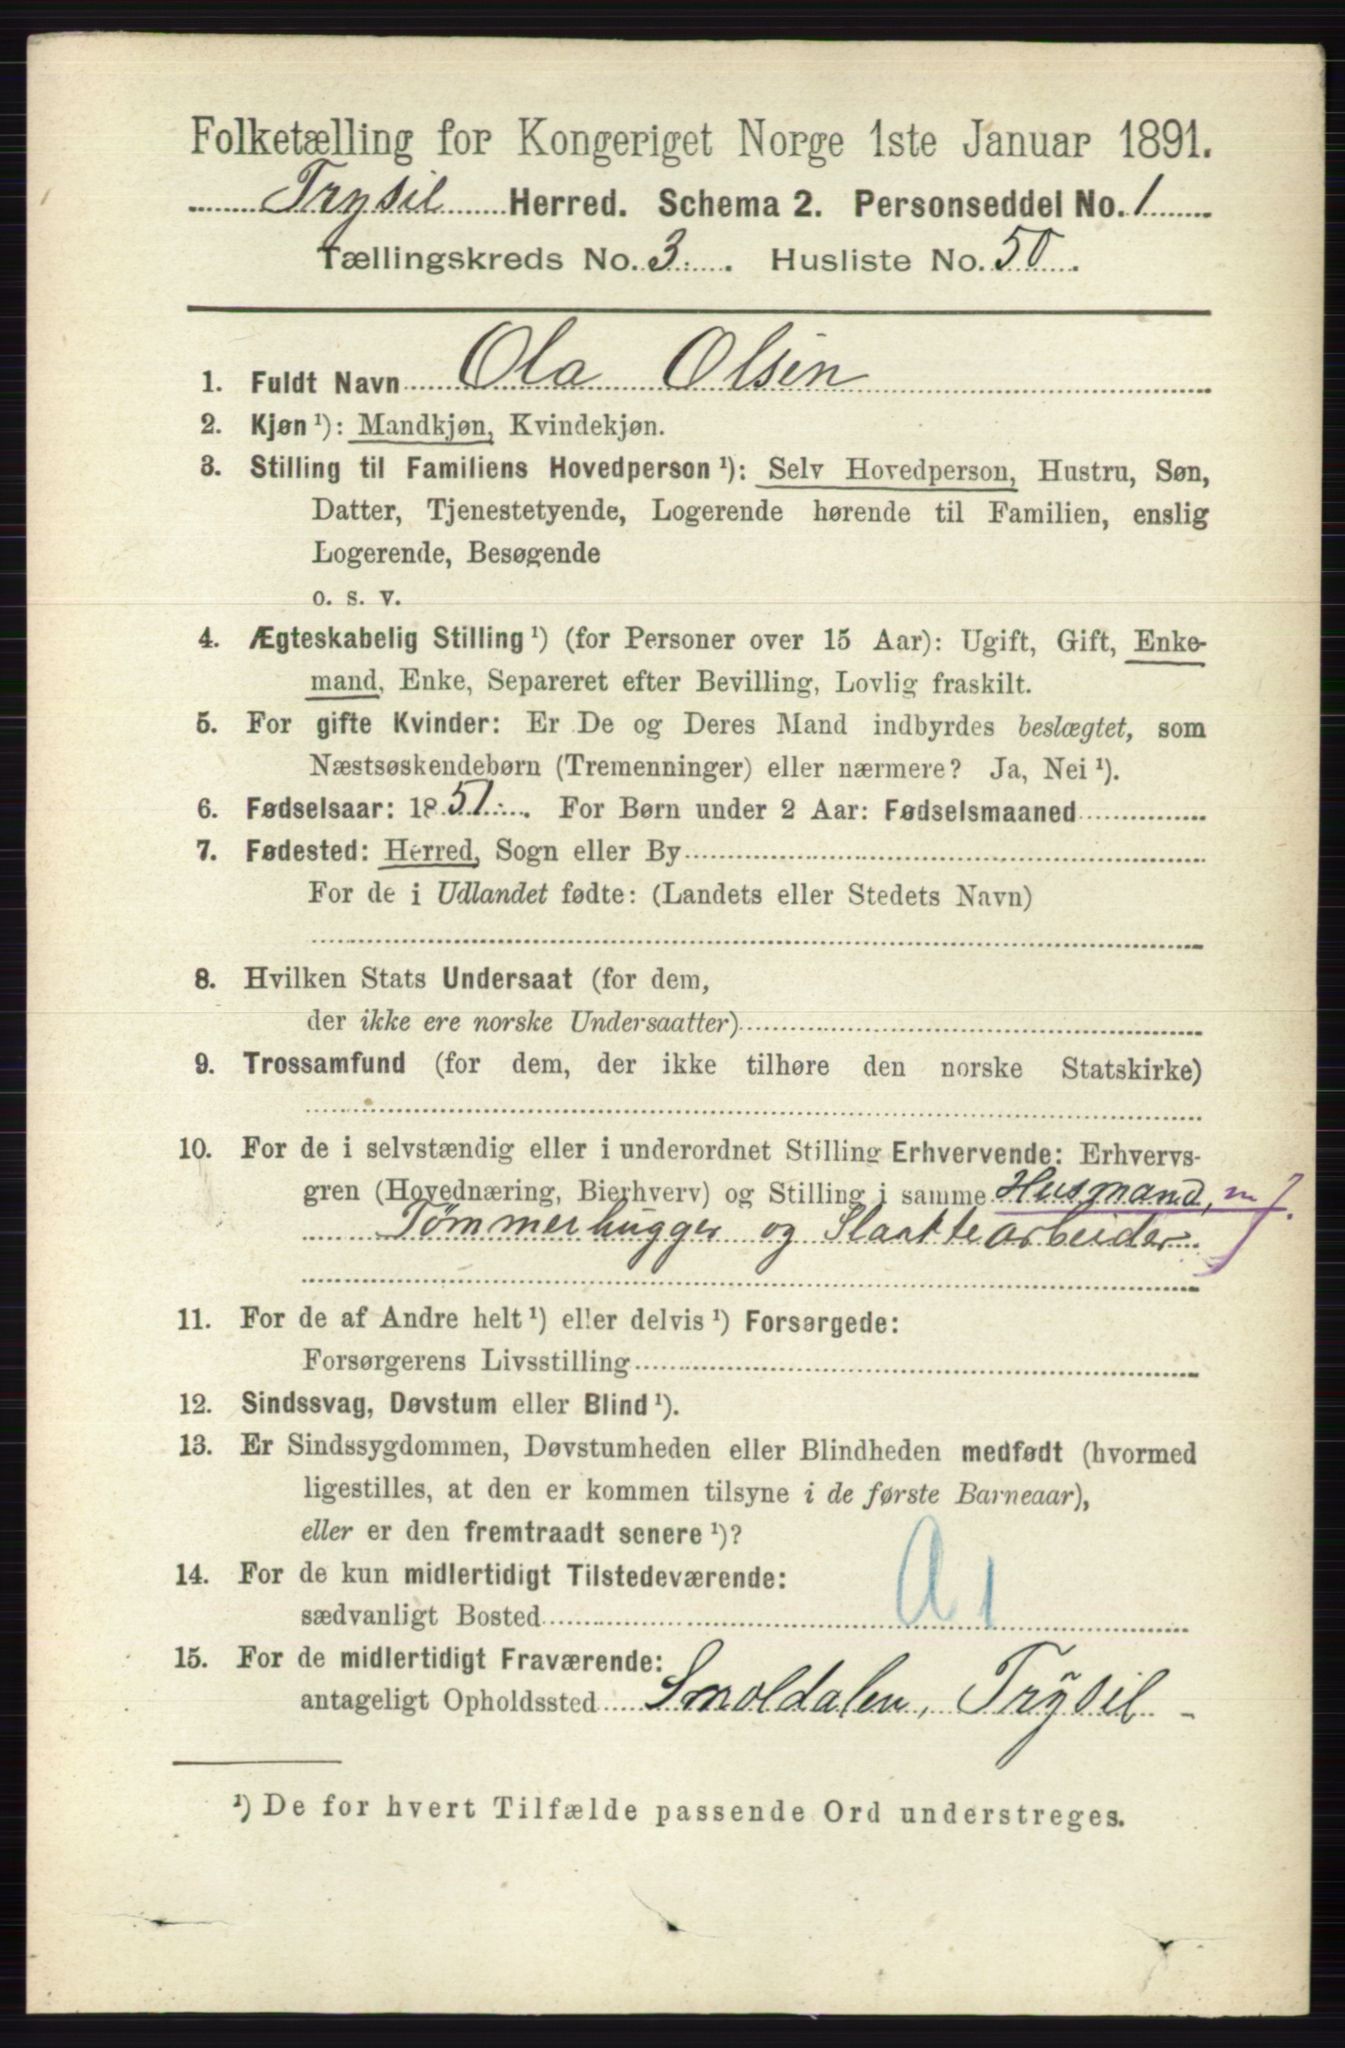 Folketælling for Kongeriget Norge 1ste Januar 1891.
Trysil Herred. Schema 2. Personseddel No. 1
Tællingskreds No. 3. Husliste No. 50.
1. Fuldt Navn Ola Olsen
2. Kjøn ¹): Mandkjøn, Kvindekjøn.
3. Stilling til Familiens Hovedperson ¹): Selv Hovedperson, Hustru, Søn,
Datter, Tjenestetyende, Logerende hørende til Familien, enslig
Logerende, Besøgende
o. s. v.
4. Ægteskabelig Stilling ¹) (for Personer over 15 Aar): Ugift, Gift, Enke-
mand, Enke, Separeret efter Bevilling, Lovlig fraskilt.
5. For gifte Kvinder: Er De og Deres Mand indbyrdes beslægtet, som
Næstsøskendebørn (Tremenninger) eller nærmere? Ja, Nei ¹).
6. Fødselsaar: 1851. For Børn under 2 Aar: Fødselsmaaned
7. Fødested: Herred, Sogn eller By
For de i Udlandet fødte: (Landets eller Stedets Navn)
8. Hvilken Stats Undersaat (for dem,
der ikke ere norske Undersaatter)
9. Trossamfund (for dem, der ikke tilhøre den norske Statskirke)
10. For de i selvstændig eller i underordnet Stilling Erhvervende: Erhvervs-
gren (Hovednæring, Bierhverv) og Stilling i samme Husmand, m J.
Tømmerhugger og Slaattearbeider.
11. For de af Andre helt ¹) eller delvis ¹) Forsørgede:
Forsørgerens Livsstilling
12. Sindssvag, Døvstum eller Blind ¹).
13. Er Sindssygdommen, Døvstumheden eller Blindheden medfødt (hvormed
ligestilles, at den er kommen tilsyne i de første Barneaar),
eller er den fremtraadt senere ¹)?
14. For de kun midlertidigt Tilstedeværende:
sædvanligt Bosted a 1
15. For de midlertidigt Fraværende:
antageligt Opholdssted Smoldalen, Trysil
¹) De for hvert Tilfælde passende Ord understreges.